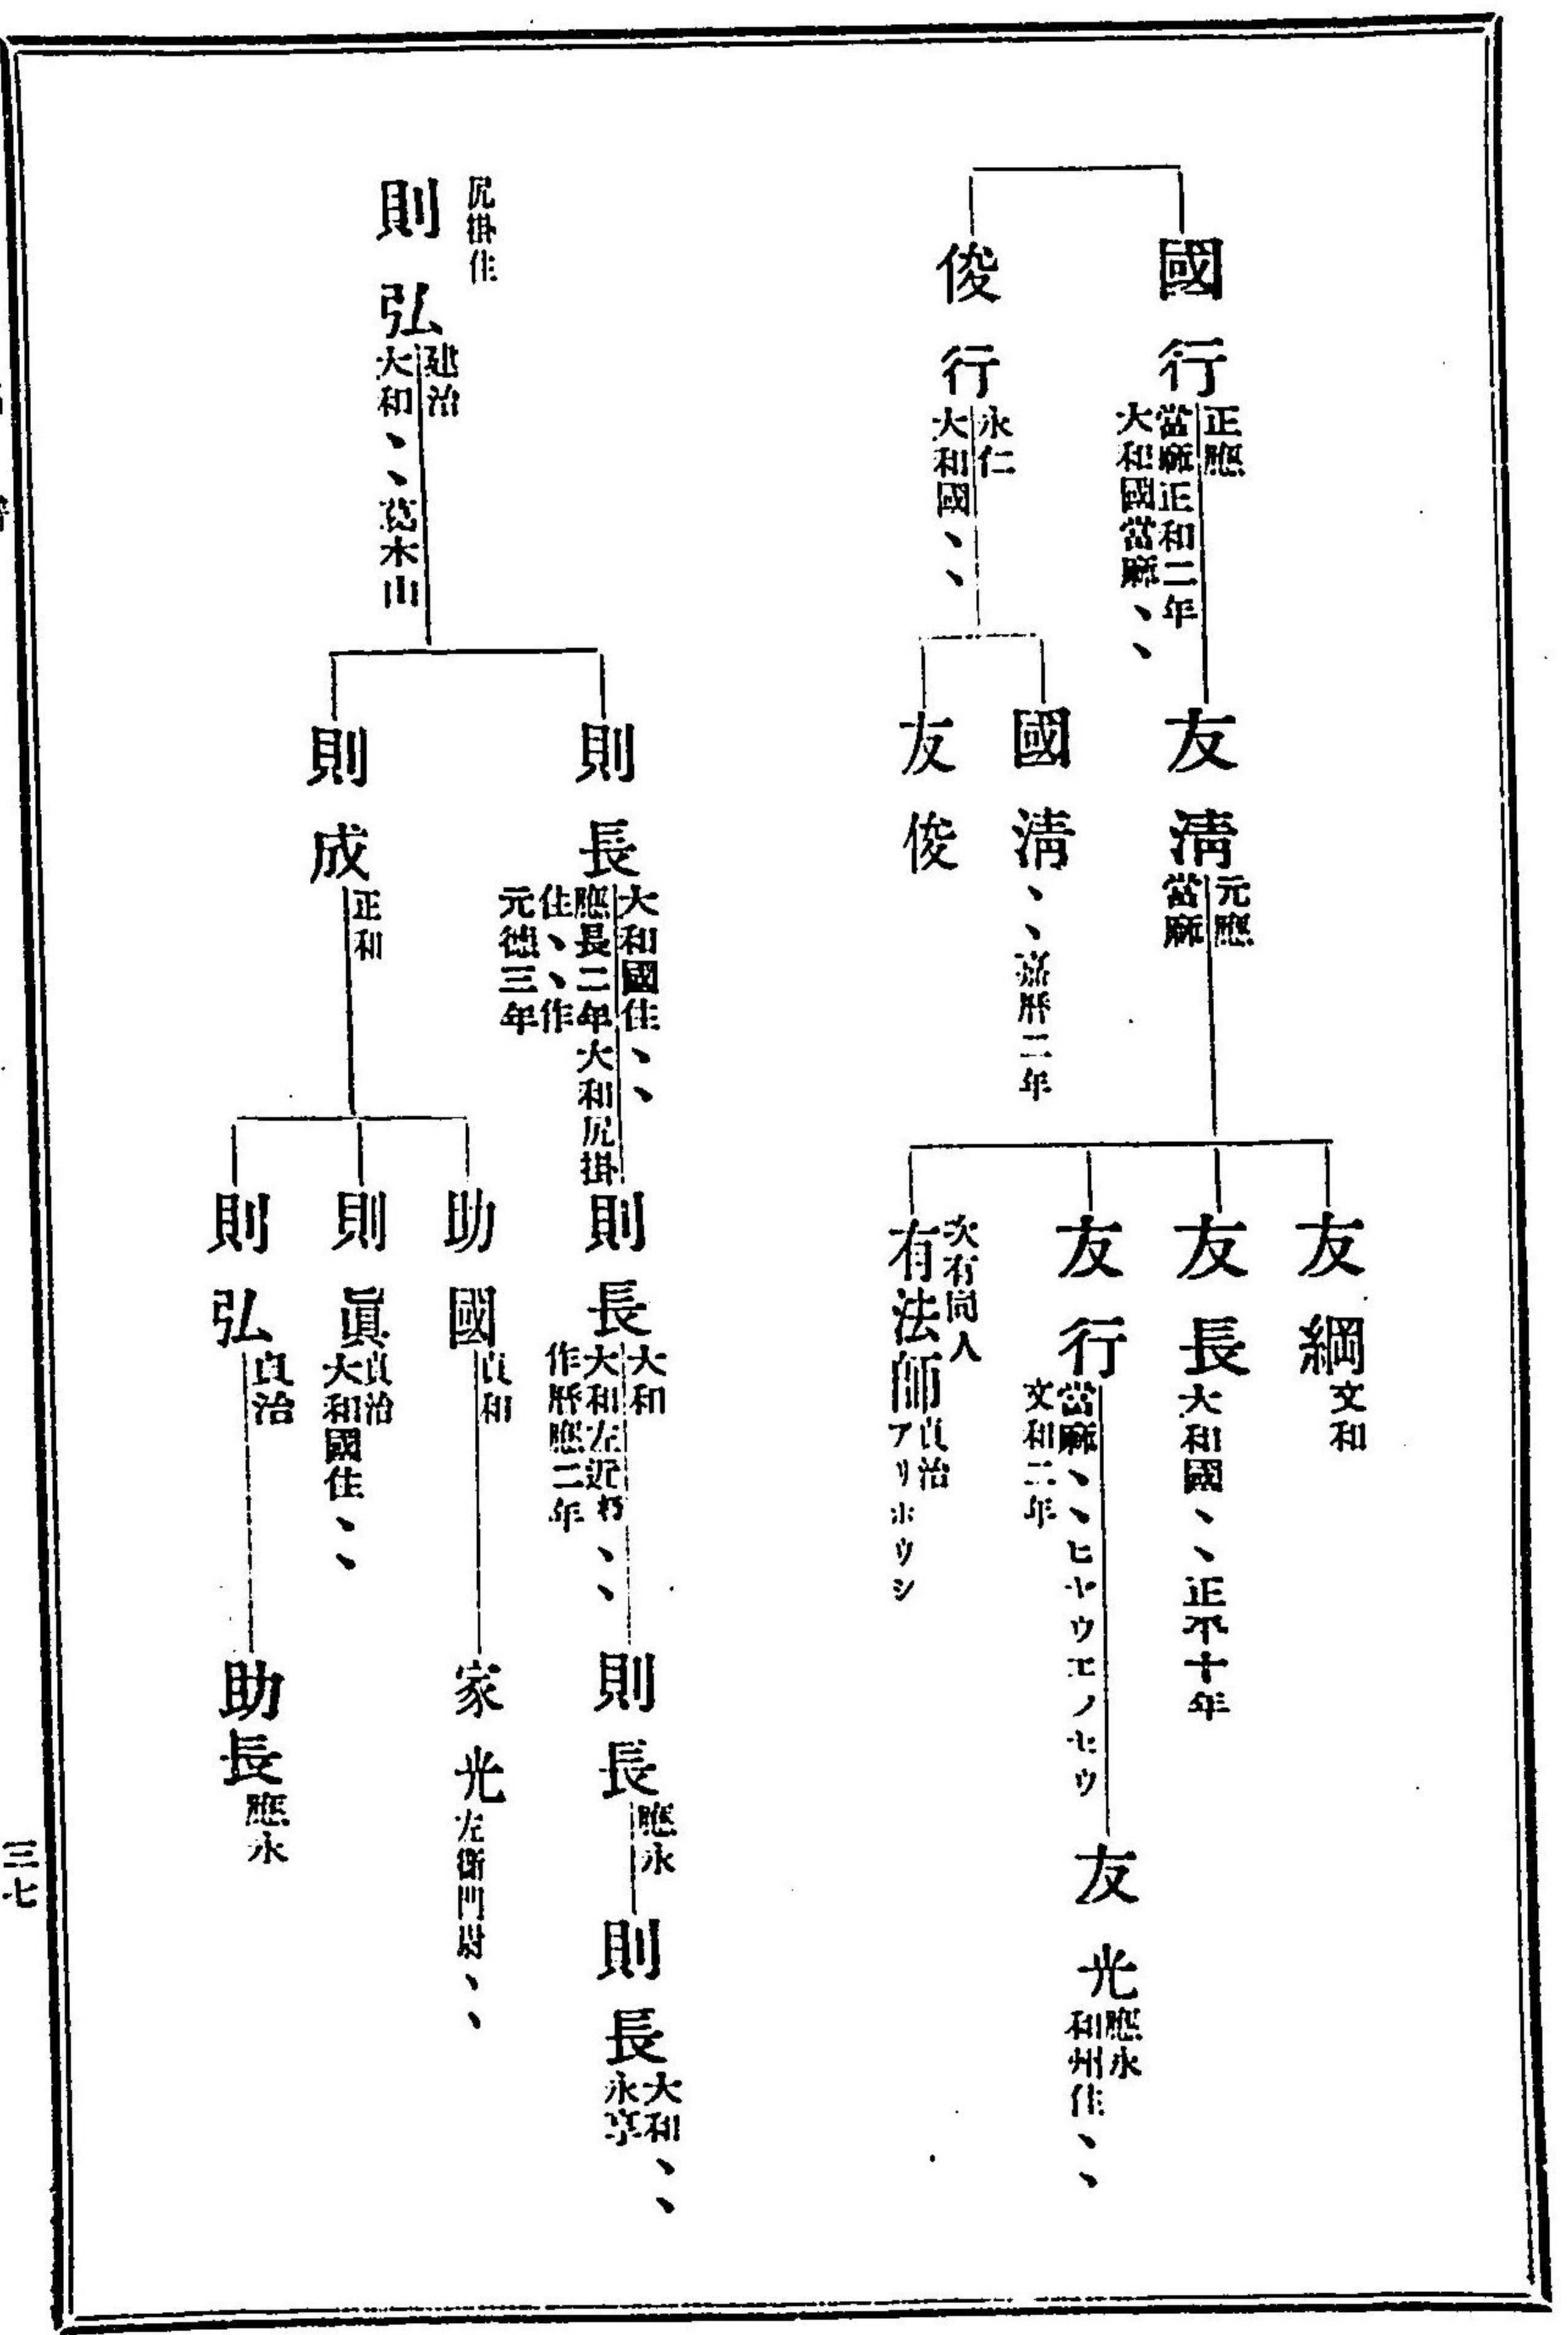 國行
正應
當麻正和二年
大和國當麻、、
友淸
元應
當麻
友綱
文和
友長
大和國、、正平十年
友行
當麻、、ヒヤウエノセウ
文和二年
友光
應永
和州住、、
次有同人
有法師
貞治
アリホウシ
俊行
永仁
大和國、、
國淸、、嘉曆二年
友俊
尻掛住
則弘
建治
大和、、葛木山
則長
大和國住、、
應長二年大和尻掛
住、、作
元德三年
則長
大和
大和左近
、、
作曆應二年
則長
應永
則長
大和、、
永享
則成
正和
助國
貞和
家光
左衞門尉、、
則眞
貞治
大和國住、、
則弘
貞治
助長
應永
三七